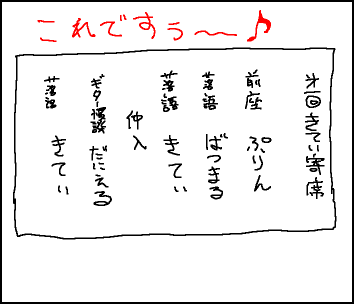 これですぅ〜〜♪
第一回きてぃ寄席
前座 ぷりん
落語 ばつまる
落語 きてぃ
仲入
ギター漫談 だにえる
落語 きてぃ